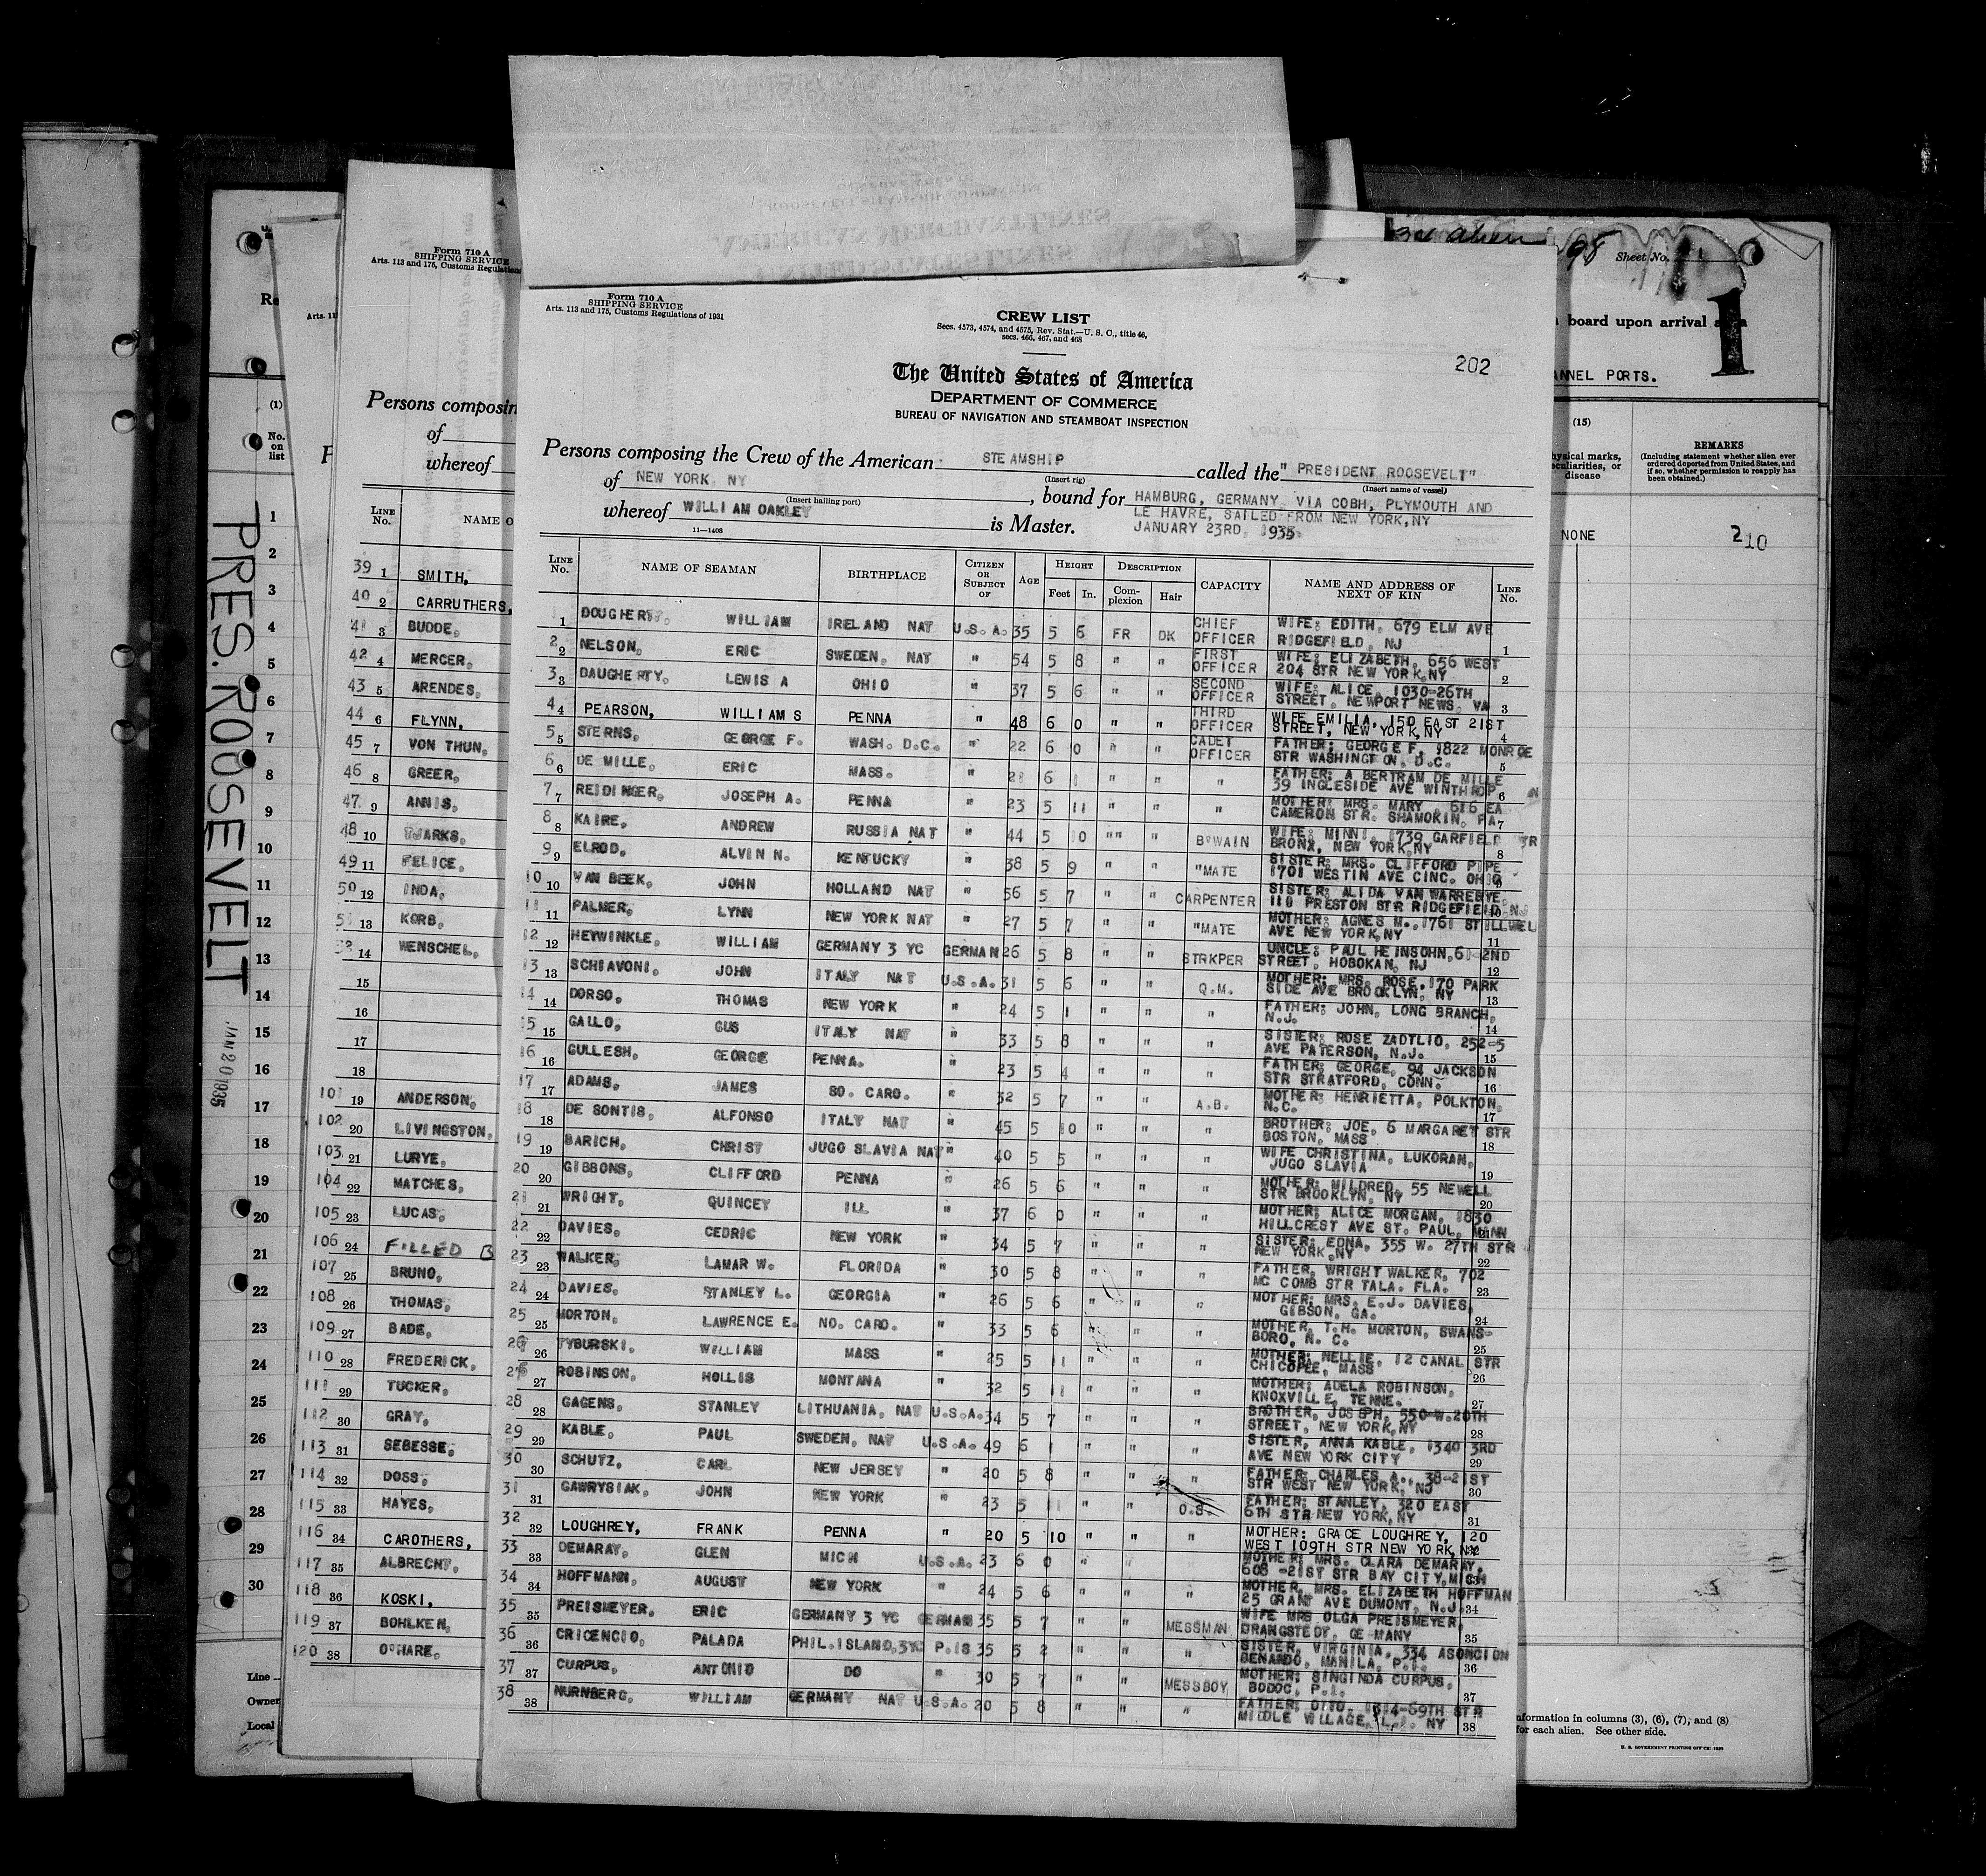 Form 710 A
SHIPPING SERVICE
Arts. 113 and 175, Customs Regulations of 1931
CREW LIST
Secs. 4573, 4574, and 4575, Rev. Stat.—U. S. C., title 46,
secs. 466, 467, and 468
202
The United States of America
DEPARTMENT OF COMMERCE
BUREAU OF NAVIGATION AND STEAMBOAT INSPECTION
Persons composing the Crew of the American STEAMSHIP called the "PRESIDENT ROOSEVELT"
(Insert rig) (Insert name of vessel)
of NEW YORK, NY, bound for HAMBURG, GERMANY VIA COBH, PLYMOUTH AND
(Insert hailing port)
LE HAVRE, SAILED FROM NEW YORK, NY
whereof WILLIAM OAKLEY is Master. JANUARY 23RD, 1935.
11—1408
LINE No. NAME OF SEAMAN BIRTHPLACE CITIZEN OR SUBJECT OF AGE HEIGHT Feet In. DESCRIPTION Complexion Hair CAPACITY NAME AND ADDRESS OF NEXT OF KIN LINE No.
1 DOUGHERTY, WILLIAM IRELAND NAT U.S.A. 35 5 6 FR DK CHIEF OFFICER WIFE: EDITH, 679 ELM AVE RIDGEFIELD, NJ 1
2 NELSON, ERIC SWEDEN, NAT " 54 5 8 " " FIRST OFFICER WIFE: ELIZABETH, 656 WEST 204 STR NEW YORK, NY 2
3 DAUGHERTY, LEWIS A OHIO " 37 5 6 " " SECOND OFFICER WIFE: ALICE, 1030-26TH STREET, NEWPORT NEWS, VA 3
4 PEARSON, WILLIAM S PENNA " 48 6 0 " " THIRD OFFICER WIFE EMILIA, 150 EAST 21ST STREET, NEW YORK, NY 4
5 STERNS, GEORGE F. WASH. D.C. " 22 6 0 " " CADET OFFICER FATHER: GEORGE F. 1822 MONROE STR WASHINGTON, D.C. 5
6 DE MILLE, ERIC MASS. " 21 6 1 " " " FATHER: A BERTRAM DE MILLE 39 INGLESIDE AVE WINTHROP 6
7 REIDINGER, JOSEPH A. PENNA " 23 5 11 " " " MOTHER: MRS. MARY, 616 EA CAMERON STR. SHAMOKIN, PA 7
8 KAIRE, ANDREW RUSSIA NAT " 44 5 10 "" " B'WAIN WIFE: MINNI, 1739 GARFIELD STR BRONX, NEW YORK, NY 8
9 ELROD, ALVIN N. KENTUCKY " 38 5 9 " " "MATE SISTER: MRS. CLIFFORD PIPE 1701 WESTIN AVE CINC. OHIO
10 VAN BEEK, JOHN HOLLAND NAT " 56 5 7 " " CARPENTER SISTER: ALIDA VAN WARREBYE, 110 PRESTON STR RIDGEFIELD, NJ
11 PALMER, LYNN NEW YORK NAT " 27 5 7 " " "MATE MOTHER: AGNES M., 1761 STILLWEL AVE NEW YORK, NY 11
12 HEYWINKLE, WILLIAM GERMANY 3 YC GERMAN 26 5 8 " " STRKPER UNCLE: PAUL HEINSOHN, 61-2ND STREET, HOBOKAN, NJ 12
13 SCHIAVONI, JOHN ITALY NAT U.S.A. 31 5 6 " " Q.M. MOTHER: MRS. ROSE, 170 PARK SIDE AVE BROOKLYN, NY 13
14 DORSO, THOMAS NEW YORK " 24 5 1 " " " FATHER: JOHN, LONG BRANCH, N.J. 14
15 GALLO, GUS ITALY NAT " 33 5 8 " " " SISTER: ROSE ZADTLIO, 252-5 AVE PATERSON, N.J. 15
16 GULLESH, GEORGE PENNA. " 23 5 4 " " " FATHER: GEORGE, 94 JACKSON STR STRATFORD, CONN. 16
17 ADAMS, JAMES SO. CARO. " 32 5 7 " " A.B. MOTHER: HENRIETTA, POLKTON, N.C. 17
18 DE SONTIS, ALFONSO ITALY NAT " 45 5 10 " " " BROTHER: JOE, 6 MARGARET STR BOSTON, MASS 18
19 BARICH, CHRIST JUGO SLAVIA NAT " 40 5 5 " " " WIFE CHRISTINA, LUKORAN, JUGO SLAVIA 19
20 GIBBONS, CLIFFORD PENNA " 26 5 6 " " " MOTHER: MILDRED, 55 NEWELL STR BROOKLYN, NY 20
21 WRIGHT, QUINCEY ILL " 37 6 0 " " " MOTHER: ALICE MORGAN, 1830 HILLCREST AVE ST. PAUL, MINN
22 DAVIES, CEDRIC NEW YORK " 34 5 7 " " " SISTER: EDNA, 355 W. 27TH STR NEW YORK, NY 22
23 WALKER, LAMAR W. FLORIDA " 30 5 8 " " " FATHER, WRIGHT WALKER, 702 MC COMB STR TALA. FLA. 23
24 DAVIES, STANLEY L. GEORGIA " 26 5 6 " " " MOTHER: MRS. E.J. DAVIES, GIBSON, GA. 24
25 MORTON, LAWRENCE E. NO. CARO. " 33 5 6 " " " MOTHER, T.H. MORTON, SWANSBORO, N. C. 25
26 TYBURSKI, WILLIAM MASS " 25 5 11 " " " MOTHER: NELLIE, 12 CANAL STR CHICOPEE, MASS 26
27 ROBINSON, HOLLIS MONTANA " 32 5 11 " " " MOTHER: ADELA ROBINSON, KNOXVILLE, TENNE. 27
28 GAGENS, STANLEY LITHUANIA, NAT U.S.A. 34 5 7 " " " BROTHER, JOSEPH, 550-W.20TH STREET, NEW YORK, NY 28
29 KABLE, PAUL SWEDEN, NAT U.S.A. 49 6 1 " " " SISTER, ANNA KABLE, 1340 3RD AVE NEW YORK CITY 29
30 SCHUTZ, CARL NEW JERSEY " 20 5 8 " " " FATHER: CHARLES A., 38-21ST STR WEST NEW YORK, NJ 30
31 GAWRYSIAK, JOHN NEW YORK " 23 5 11 " " O.S. FATHER: STANLEY, 320 EAST 6TH STR NEW YORK, NY 31
32 LOUGHREY, FRANK PENNA " 20 5 10 " " " MOTHER: GRACE LOUGHREY, 120 WEST 109TH STR NEW YORK, NY
33 DEMARAY, GLEN MICH U.S.A. 23 6 0 " " MOTHER: MRS. CLARA DEMARAY, 608 -21ST STR BAY CITY, MICH
34 HOFFMANN, AUGUST NEW YORK " 24 5 6 " " " MOTHER, MRS. ELIZABETH HOFFMAN 25 GRANT AVE DUMONT, N.J. 34
35 PREISMEYER, ERIC GERMANY 3 YC GERMAN 35 5 7 " " MESSMAN WIFE MRS OLGA PREISMEYER, DRANGSTEDT, GE-MANY 35
36 CRICENCIO, PALADA PHIL.ISLAND,3YC P.IS 35 5 2 " " " SISTER, VIRGINIA, 334 ASONCION BENANDO, MANILA, P.I. 36
37 CURPUS, ANTONIO DO " 30 5 7 " " MESSBOY MOTHER: SINGINDA CURPUS, BODOC, P.I. 37
38 NURNBERG, WILLIAM GERMANY NAT U.S.A. 20 5 8 " " " FATHER: OTTO, 1314-69TH STR MIDDLE VILLAGE, L.I. NY 38
Form 710 A
SHIPPING SERVICE
Arts. 113 and 175, Customs Regulations
Persons composin
of
whereof
LINE No. NAME O
39 1 SMITH,
40 2 CARRUTHERS,
41 3 BUDDE,
42 4 MERCER,
43 5 ARENDES,
44 6 FLYNN,
45 7 VON THUN,
46 8 GREER,
47 9 ANNIS,
48 10 TJARKS,
49 11 FELICE,
50 12 INDA,
51 13 KORB,
52 14 WENSCHEL,
15
16
17
18
101 19 ANDERSON,
102 20 LIVINGSTON,
103 21 LURYE,
104 22 MATCHES,
105 23 LUCAS,
106 24 FILLED B
107 25 BRUNO,
108 26 THOMAS,
109 27 BADE,
110 28 FREDERICK,
111 29 TUCKER,
112 30 GRAY,
113 31 SEBESSE,
114 32 DOSS,
115 33 HAYES,
116 34 CAROTHERS,
117 35 ALBRECHT,
118 36 KOSKI,
119 37 BOHLKEN,
120 38 O'HARE,
Arts. 11
(1)
No. on list
1
2
3
4
5
6
7
8
9
10
11
12
13
14
15
16
17
18
19
20
21
22
23
24
25
26
27
28
29
30
Line
Owner
Local
PRES. ROOSEVELT
alien 98 Sheet No.
1
board upon arrival at a
ANNEL PORTS.
(15)
hysical marks,
eculiarities, or
disease
REMARKS
(Including statement whether alien ever
ordered deported from United States, and
if so, whether permission to reapply has
been obtained.)
NONE
210
nformation in columns (3), (6), (7), and (8)
for each alien. See other side.
U. S. GOVERNMENT PRINTING OFFICE